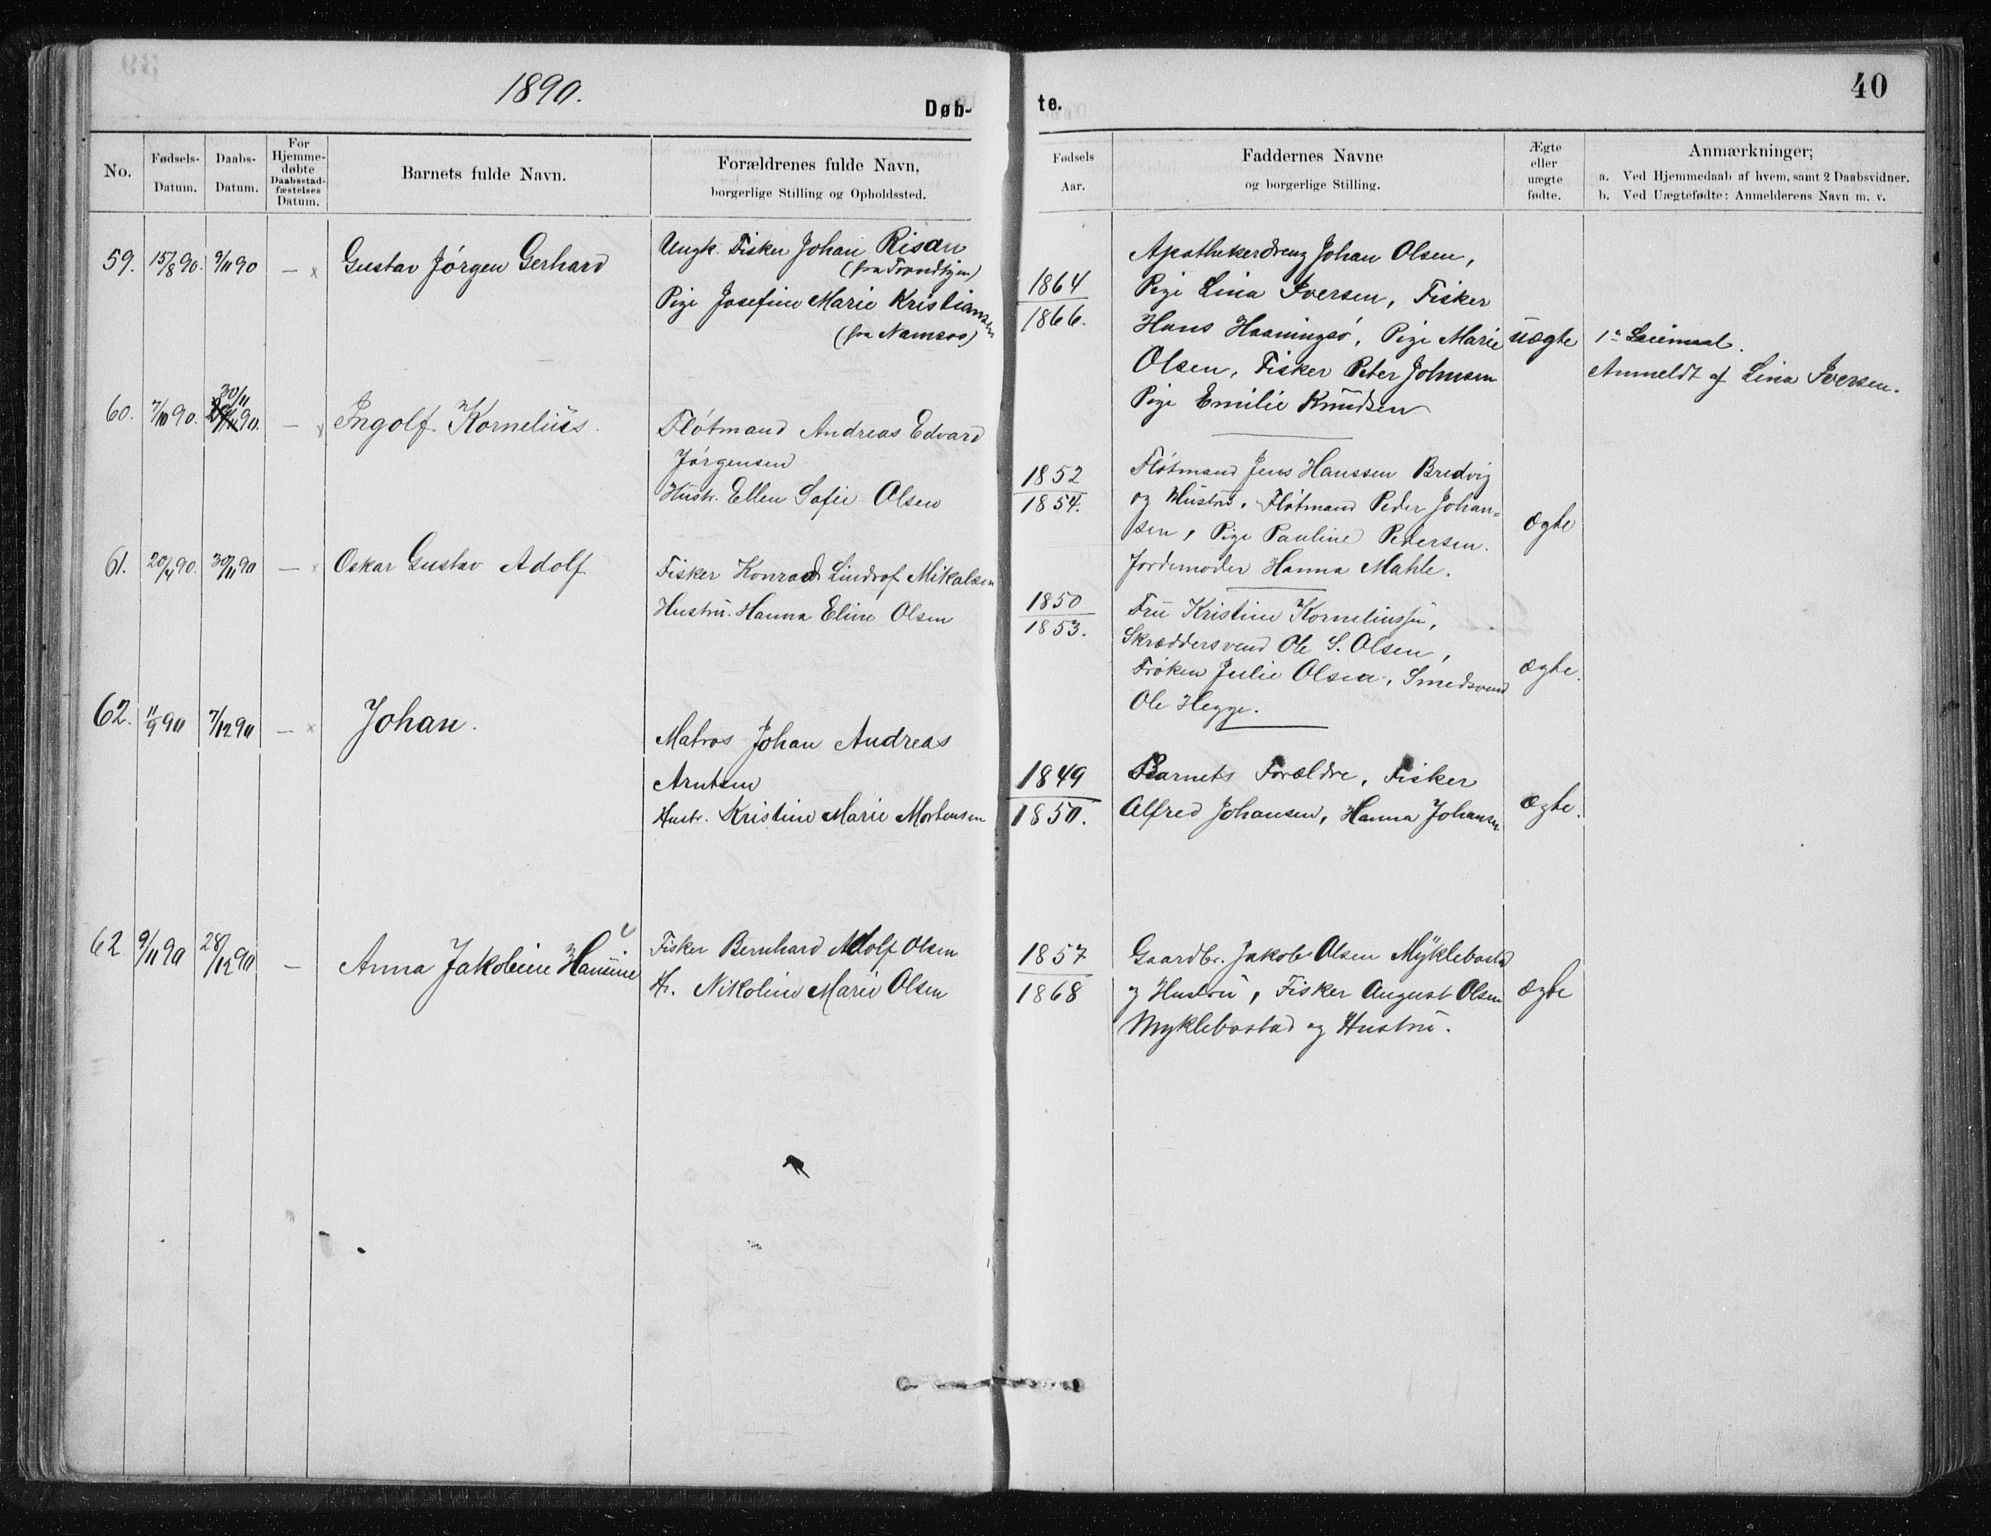 1890.
Døb-
No.
Fødsels-
Datum.
Daabs-
Datum.
For
Hjemme-
døbte
Daabsstad-
fæstelses
Datum.
Barnets fulde Navn.
Forældrenes fulde Navn,
borgerlige Stilling og Opholdssted.
59. 15/8 90. 9/11 90 — x Gustav Jørgen Gerhard
Ungk. Fisker Johan Risan
(fra Trondhjem)
Pige Josefine Marie Kristiansen
(fra Namsos)
30/11
60. 7/10 90. 90. — x Ingolf Kornelius.
Fløtmand Andreas Edvard
Jørgensen
Hustr. Ellen Sofie Olsen
61. 20/4 90. 30/11 90 — x Oskar Gustav Adolf
Fisker Konrad Lindrof Mikalsen
Hustru. Hanna Eline Olsen
62. 11/9 90 7/12 90 — x Johan.
Matros Johan Andreas
Arntsen
Hustr. Kristine Marie Mortensen
62 9/11 90 28/12 90 — Anna Jakobine Hansine
Fisker Bernhard Adolf Olsen
H. Nikoline Marie Olsen
40
te.
Fødsels
Aar.
Faddernes Navne
og borgerlige Stilling.
Ægte
eller
uægte
fødte.
Anmærkninger;
a. Ved Hjemmedaab af hvem, samt 2 Daabsvidner.
b. Ved Uægtefødte: Anmelderens Navn m. v.
1864
1866.
Apothekerdreng Johan Olsen,
Pige Lina Iversen, Fisker
Hans Haaningsø, Pige Marie
Olsen, Fisker Peter Johnsen
Pige Emilie Knudsen
uægte
1ste Leiermaal.
Anmeldt af Lina Iversen.
1852
1854.
Fløtmand Jens Hanssen Bredvig
og Hustru, Fløtmand Peder Johan=
sen, Pige Pauline Pedersen.
Jordemoder Hanna Mahle.
ægte
1850
1853.
Fru Kristine Korneliussen,
Skræddersvend Ole S. Olsen,
Frøken Julie Olsen, Smedsvend
Ole Hegge.
ægte.
1849
1850.
Barnets Forældre, Fisker
Alfred Johansen, Hanna Johansen
ægte.
1857
1868
Gaardbr. Jakob Olsen Myklebostad
og Hustru, Fisker August Olsen
Myklebostad og Hustru.
ægte